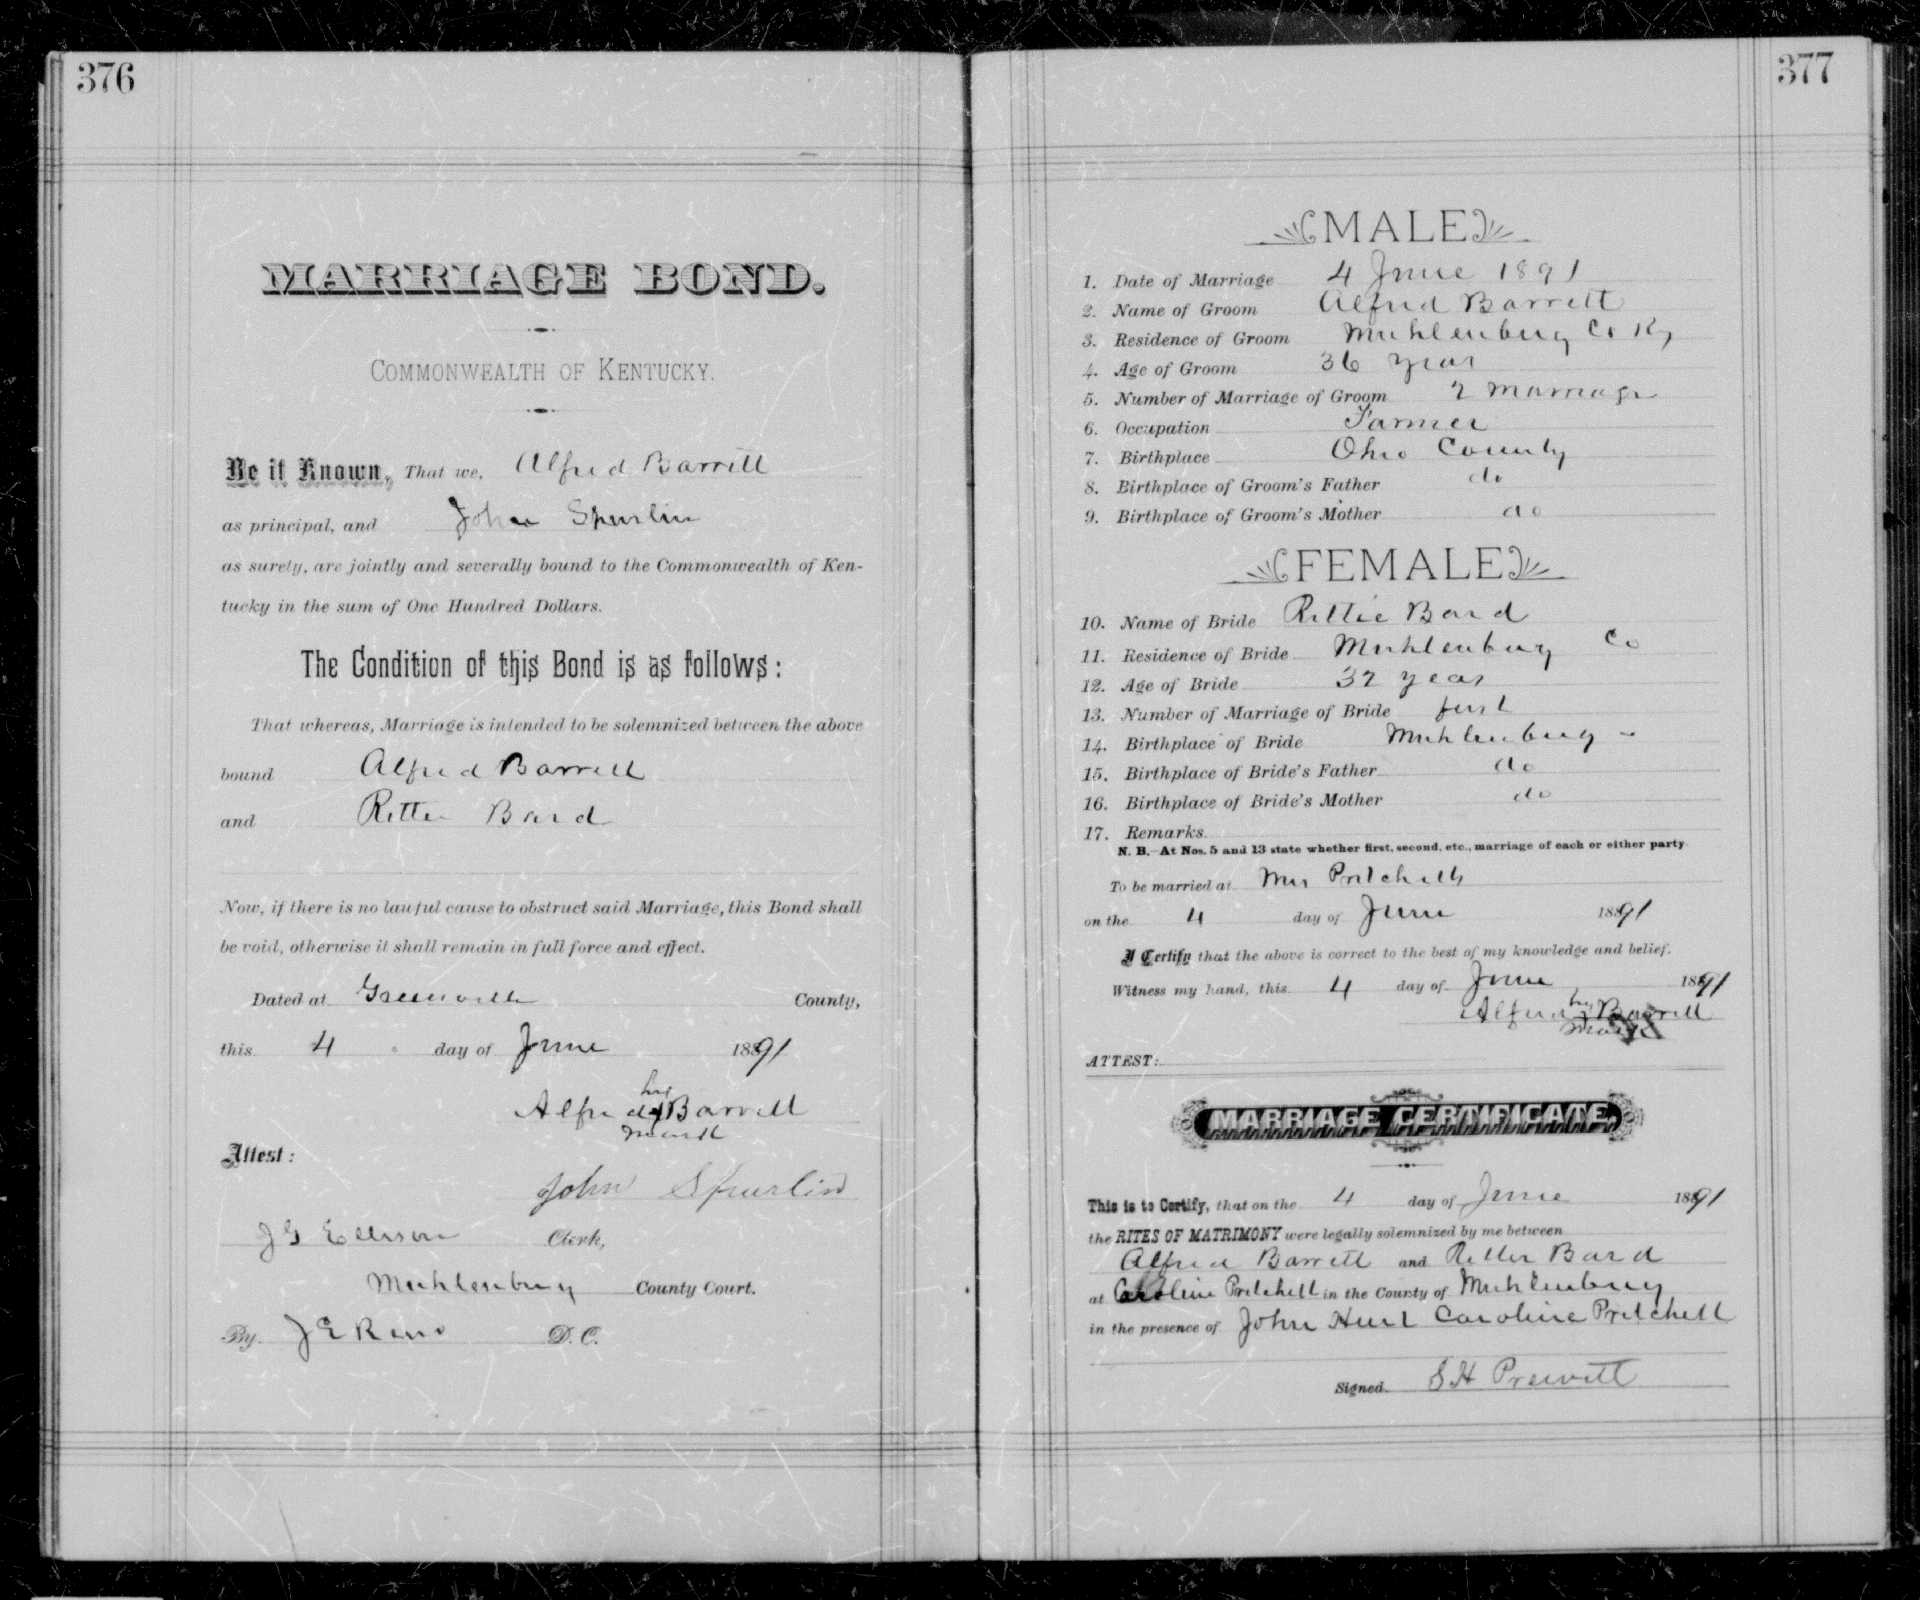 376
MARRIAGE BOND.
COMMONWEALTH OF KENTUCKY.
Be it Known, That we, Alfred Barrett
as principal, and John Spurlin
as surety, are jointly and severally bound to the Commonwealth of Ken-
tucky in the sum of One Hundred Dollars.
The Condition of this Bond is as follows:
That whereas, Marriage is intended to be solemnized between the above
bound Alfred Barrett
and Rittie Bard
Now, if there is no lawful cause to obstruct said Marriage, this Bond shall
be void, otherwise it shall remain in full force and effect.
Dated at Greenville County,
this 4 day of June 1891
his
Alfred x Barrett
mark
Attest:
John Spurlin
J G Ellison Clerk,
Muhlenburg County Court.
By J E Reno D. C.
377
MALE
1. Date of Marriage 4 June 1891
2. Name of Groom Alfred Barrett
3. Residence of Groom Muhlenburg Co Ky
4. Age of Groom 36 year
5. Number of Marriage of Groom 2 marriage
6. Occupation Farmer
7. Birthplace Ohio County
8. Birthplace of Groom's Father do
9. Birthplace of Groom's Mother do
FEMALE
10. Name of Bride Rittie Bard
11. Residence of Bride Muhlenburg Co
12. Age of Bride 37 year
13. Number of Marriage of Bride first
14. Birthplace of Bride Muhlenburg -
15. Birthplace of Bride's Father do
16. Birthplace of Bride's Mother do
17. Remarks
N. B.—At Nos. 5 and 13 state whether first, second, etc., marriage of each or either party.
To be married at Mrs Pritchetts
on the 4 day of June 1891
I Certify that the above is correct to the best of my knowledge and belief.
Witness my hand, this 4 day of June 1891
his
Alfred x Barrett
mark
ATTEST:
MARRIAGE CERTIFICATE.
This is to Certify, that on the 4 day of June 1891
the RITES OF MATRIMONY were legally solemnized by me between
Alfred Barrett and Ritter Bard
at Caroline Pritchett in the County of Muhlenburg
in the presence of John Hurt Caroline Pritchett
Signed. S H Prewitt